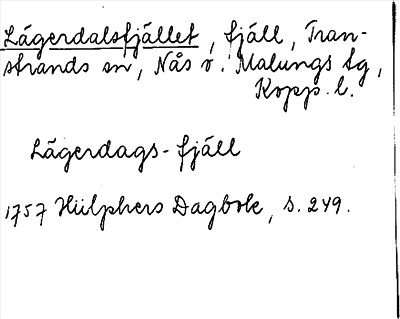 Lägerdalsfjället, fjäll, Tran-
strands sn, Nås o. Malungs tg,
Kopp. l.
Lägerdags-fjäll
1757 Hülphers Dagbok, s. 249.